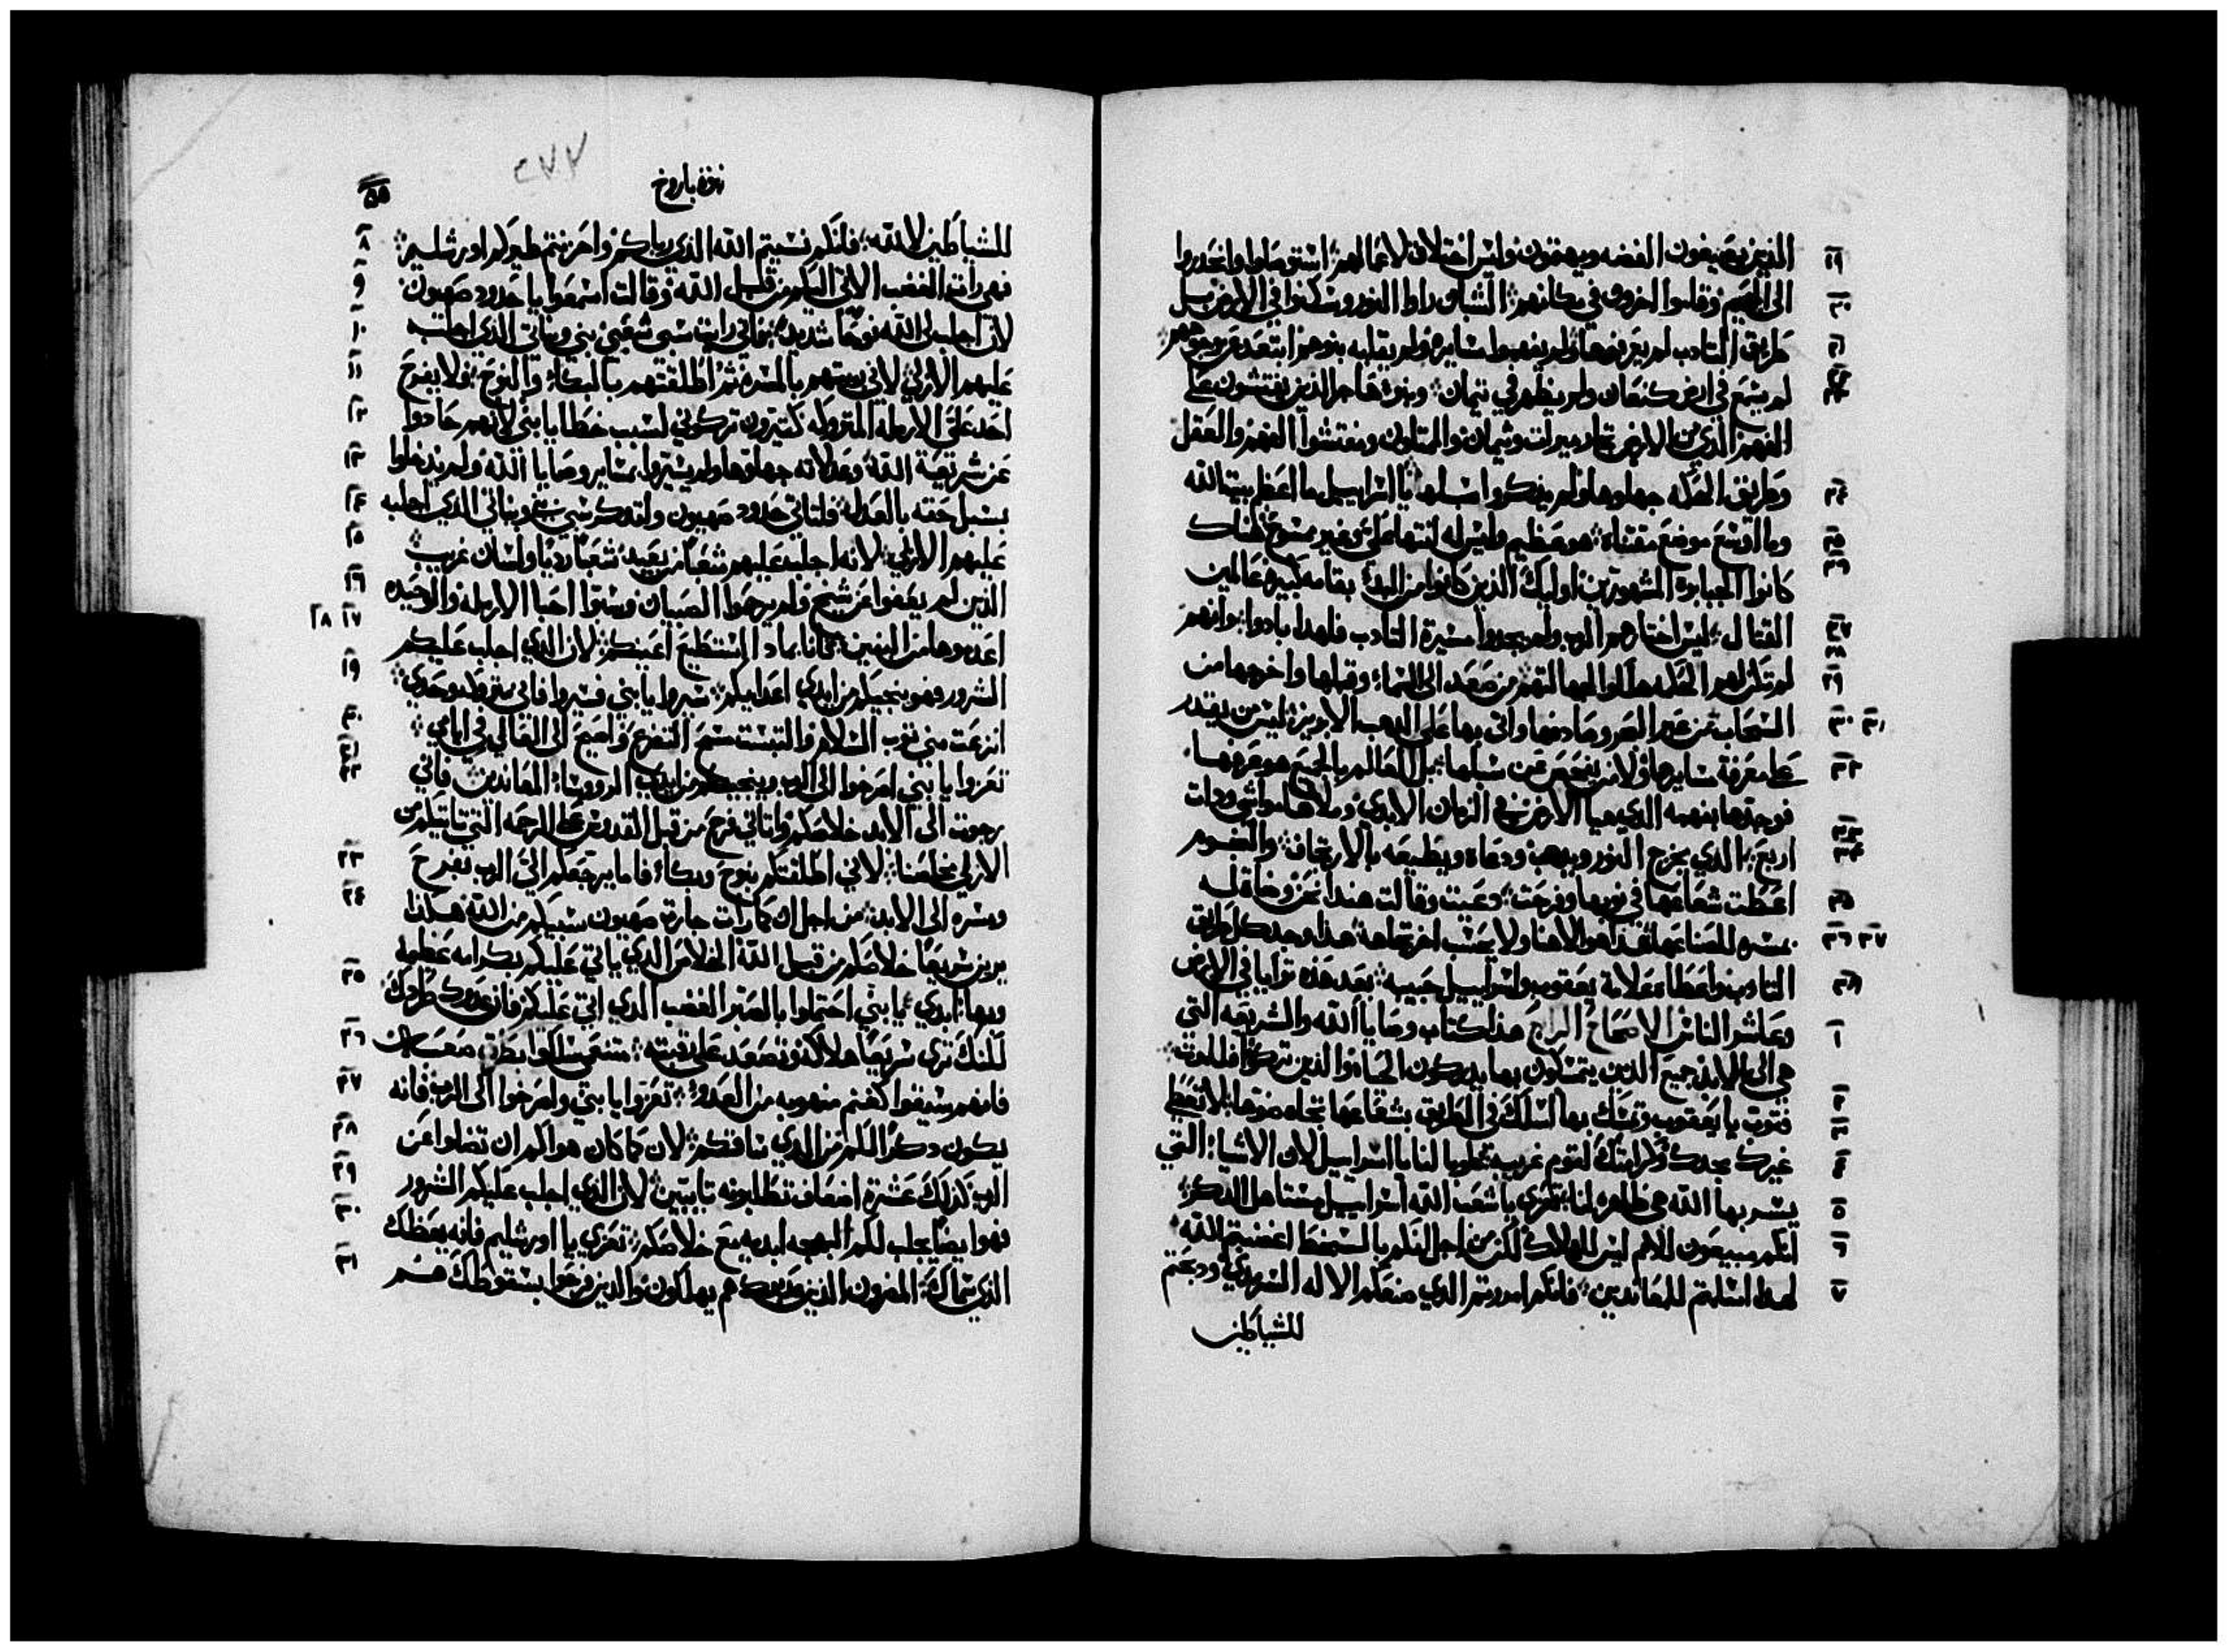 الذين يصيغون الفضه ويهتمون وليس اختلاق لاعمالهم استوصلوا وانحدروا
الى الجحيم وقاموا اخرون في مكانهم الشباب راوا النور وسكنوا في الارض بل
طريق التادب لم يعرفوها ولم يفهموا سايره ولم يقبله بنوهم ابتعد عن وجوههم
لم يسمع في ارض كنعان ولم يظهر في تيمان وبنو هاجر الذين يفتشون على
الفهم الذي من الارض تجار ميرات وتيمان والمتلون ومفتشوا الفهم والعقل
وطريق الحكمه جهلوها ولم يذكروا سبلها يا اسراييل ما اعظم بيت الله
وما اوسع موضع مقتناه هو عظيم وليس له انتها على وغير ممسوح هناك
كانوا الجبابره المشهورين اوليك الذين كانوا من البدء بقامه كبيره عالمين
القتال ليس اختارهم الرب ولم يجدوا مسيرة التادب فلهدا بادوا وانهم
لم تكن لهم الحكمه هلكوا لجهالتهم من صعد الى السماء وقبلها واخرجها من
السحاب من عبر البحر وصادفها واتى بها على الدهب الابريز ليس من يقدر
على معرفة سايرها ولا من يفحص عن سبلها بل العالم بالجميع هو عرفها
فوجدها بفهمه الدي هيا الارض في الزمان الابدي وملاها مواشي ودوات
اربع الدي يخرج النور ويدهب ودعاه ويطيعه بالارتجاف والنجوم
اعطت شعاعها في نوبها وفرحت دعيت وقالت هندا نحن وضاة له
بمسره للصانعها هدا هو الاهنا ولا يحسب اخر تجاهه هذا وجد كل طريق
التادب واعطاه علامة يعقوب واسراييل حبيبه بعد هذه ترايا في الارض
وعاشر الناس الاصحاح الرابع هذا كتاب وصايا الله والشريعه التي
هي الى الابد جميع الدين يتمسكون بها يدركون الحياه والدين تركوها فللموت
فتوب يا يعقوب وتمسك بها اسلك في الطريق بشعاعها تجاه ضوها لا تعطي
غيرك مجدك وكرامتك لقوم غريبه طوبا لنا يا اسراييل لان الاشياء التي
يسر بها الله هي ظاهره لنا تعزي يا شعب الله اسراييل مستاهل الدكر
انكم مبيعون للامم ليس للهلاك لكن من اجل انكم بالسخط اغضبتم الله
لهدا اسلمتم للمعاندين فانكم امررتم الدي صنعكم الاله السرمدي ودبحتم
للشياطين
نبوة باروخ
للشياطين لا لله فانكم نسيتم الله الذي رباكم واحزنتم طيركم اورشليم
فهي رات الغضب الاتي اليكم من قبل الله وقالت اسمعوا يا حدود صهيون
لان اجلب لي الله نوحا شديدا فاني رايت سبي شعبي بني وبناتي الذي اجلبه
عليهم الازلي لاني ربيتهم بالمسره ثم اطلقتهم بالبكاء والنوح فلا يفرح
احد علي الارمله المتروكه كتيرون تركوني لسبب خطايا بني لانهم حادوا
عن شريعة الله وعدلاته جهلوها ولم يسيروا بمساير وصايا الله ولم يدخلوا
بسبل حقه بالعدل فلتاتي حدود صهيون ولتدكر سبي بني وبناتي الذي اجلبه
عليهم الازلي لانه اجلب عليهم شعبا من بعيد شعبا رديا ولسان غريب
الدين لم يعفوا عن شيخ ولم يرحموا الصبيان وسبوا احبا الارمله والوحيده
اعدموها من البنين فانا بماذا استطيع اعينكم لان الدي اجلب عليكم
الشرور فهو ينجيكم من ايدي اعدايكم سيروا يا بني فسيروا فاني متروكه وحدي
انزعت مني ثوب السلام والتبست مسح التضرع واصيح الى العالي في ايامي
تعزوا يا بني اصرخوا الى الرب وينجيكم من ايدي الرووساء المعاندين فاني
رجوت الى الابد خلاصكم واتاني فرح من قبل القدوس على الرحمه التي تاتيكم من
الازلي مخلصنا لاني اطلقتكم بنوح وبكاء فاما يرجعكم الي الرب بفرح
ومسره الى الابد من اجل ان كما رات جارة صهيون سبيكم من الله هكذا
يرين سريعا خلاصكم من قبل الله الخلاص الدي ياتي عليكم بكرامه عظيمه
وبهاء ابدي يا بني احتملوا بالصبر الغضب الدي اتي عليكم فان عدوك طردك
لكنك ترى سريعا هلاكه وتصعد على رقبته متنعمي سلكوا بطرق صعبات
فانهم سيقوا كغنم منهوبه من العدو تعزوا يا بني واصرخوا الى الرب فانه
يكون دكرا لكم من الدي ساقكم لان كما كان هواكم ان تضلوا عن
الرب كذلك عشرة اضعاف تطلبونه تايبين لان الدي اجلب عليكم الشرور
فهو ايضا يجلب لكم البهجه ابديه مع خلاصكم تعزي يا اورشليم فانه يعظك
الذي سماك المضرون الذين هم يهلكون والدين فرحوا بسقوطك هم